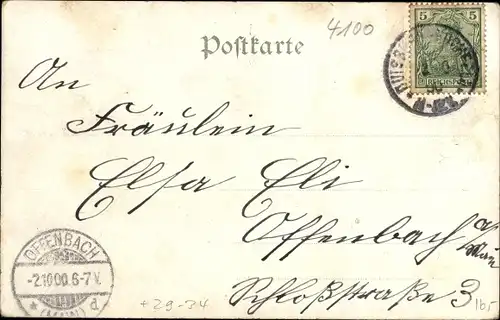 4100
Postkarte
5 5
REICHSPOST
An
Fräulein
Elsa Eli
Offenbach a/Main
Schloßstraße 3
OFFENBACH
-2.10.00.6-7V.
(MAIN) d
+29-34
16,-